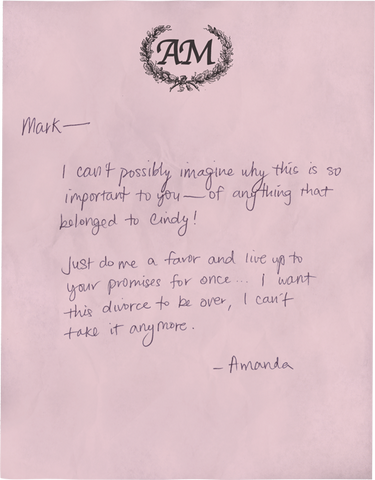 AM
Mark—
I can't possibly imagine why this is so
important to you—of anything that
belonged to Cindy!
Just do me a favor and live up to
your promises for once... I want
this divorce to be over, I can't
take it anymore.
– Amanda